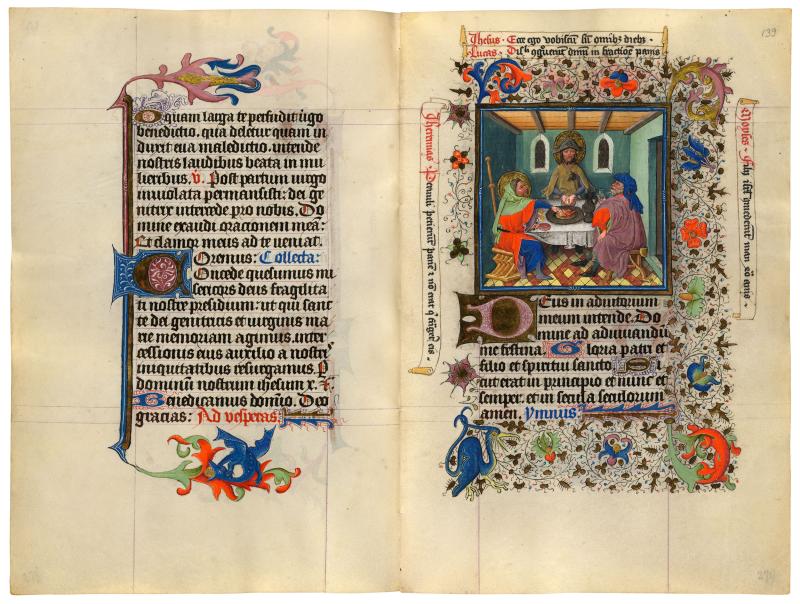 O quam larga te perfudit virgo
benedictio. quia deletur quam in
duxit eua maledictio. intende
nostris laudibus beata in mu
lieribus. v. Post partum virgo
inuiolata permansisti: dei ge
nitrix intercede pro nobis. Do
mine exaudi orationem mea:
Et clamor meus ad te veniat.
Oremus: Collecta:
Concede quesumus mi
sericors deus fragilita
ti nostre presidium: ut qui sanc
te dei genitricis et virginis ma
rie memoriam agimus. inter
cessionis eius auxilio a nostris
iniquitatibus resurgamus. P
dominum nostrum ihesum x. 
Benedicamus domino. Deo
gracias: Ad vesperas:
139
Ihesus · Ecce ego vobiscu su omibz diebz
Lucas · in fractioe panis
Iheremias · Paruuli petierut pane z no erat q frageret eis
Moyses · filij isrl comederut man xl anis
Deus in adiutorium
meum intende. Do
mine ad adiuuandu
me festina. Gloria patri et
filio et spiritui sancto. Si
cut erat in principio et nunc et
semper. et in secula seculorum
amen. Ymnus